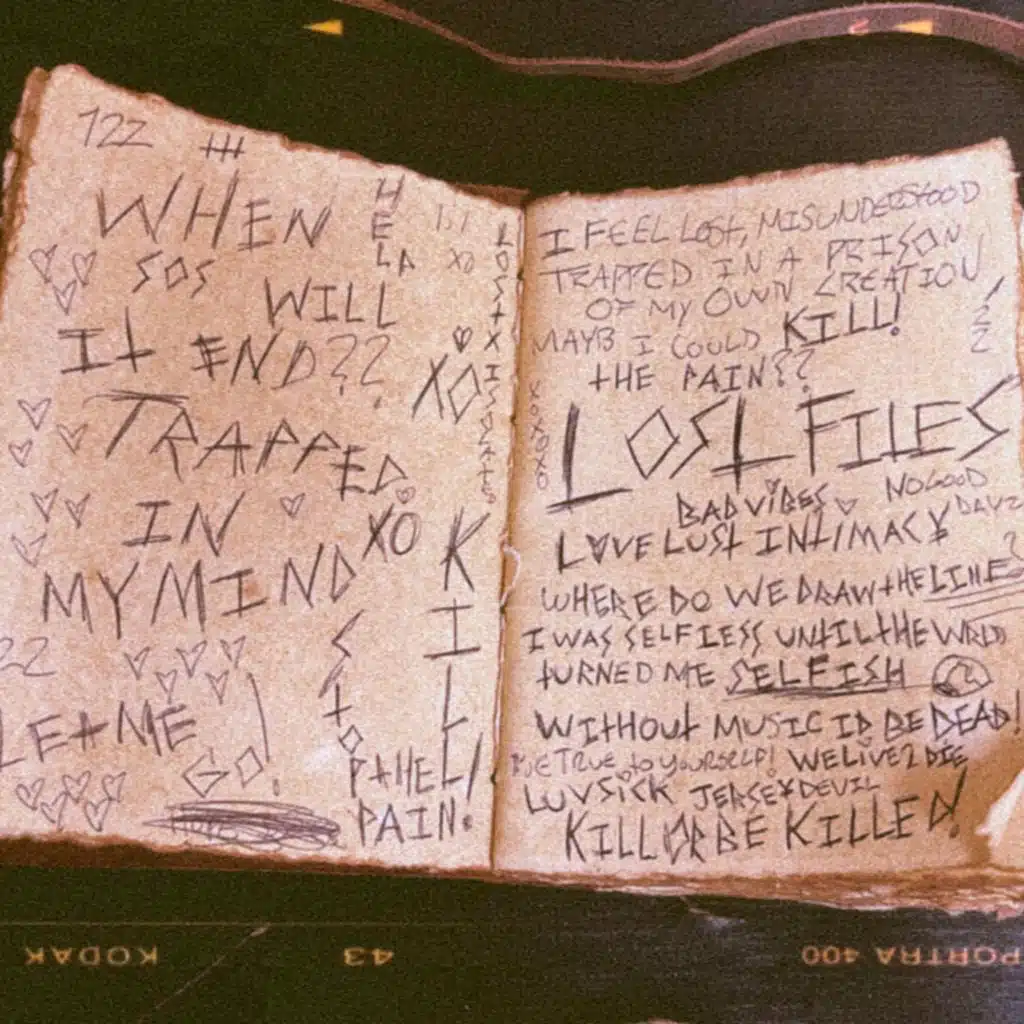 122
WHEN
HELP
SOS
WILL
It END??
XO
TRAPPED
IN
XO
MY MIND
22
LEt ME
GO!
StOP tHE
PAIN!
KILL!
LOSt X
I FEEL LOSt, MISUNDERSTOOD
TRAPPED IN A PRISON
OF MY OWN CREATION
MAYB I COULD KILL!
tHE PAIN??
122
XOXOXO
LOSt FILES
BAD VIBES
NO GOOD
DAYZ
LOVE LUSt INtIMACY
WHERE DO WE DRAW tHE LINE?
I WAS SELFLESS UNtIL tHE WRLD
tURNED ME SELFISH
WItHOUt MUSIC ID BE DEAD!
BE TRUE to YOURSELF! WE LIVE 2 DIE
LUVSICK JERSEY DEVIL
KILL OR BE KILLED!
KODAK
43
PORTRA 400